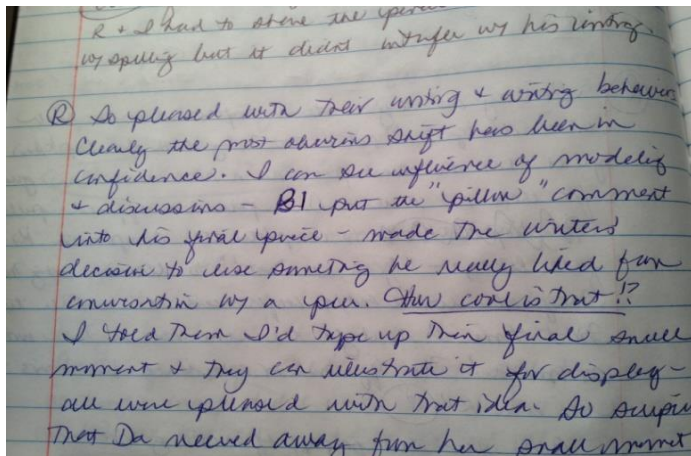 R + I had to share the
w/ spelling but it didnt interfer w/ his writing.
R So pleased with their writing & writing behaviors
Clearly the most obvious shift has been in
confidence. I can see influence of modeling
+ discussions - B1 put the "pillow" comment
into his final piece - made the writers'
decision to use something he really liked from
conversation w/ a peer. How cool is that!?
I told them I'd type up their final small
moment & they can illustrate it for display -
all were pleased with that idea. So
That Da moved away from her small moment